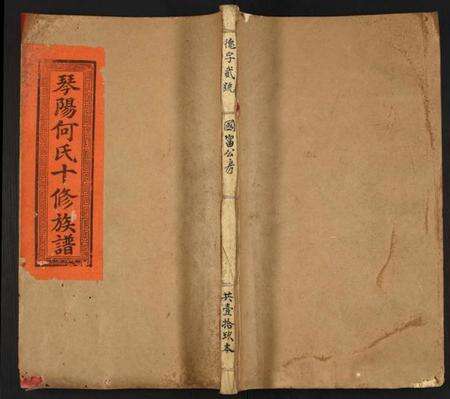 琴陽何氏十修族譜
德字貳號
國富公房
共壹拾玖本